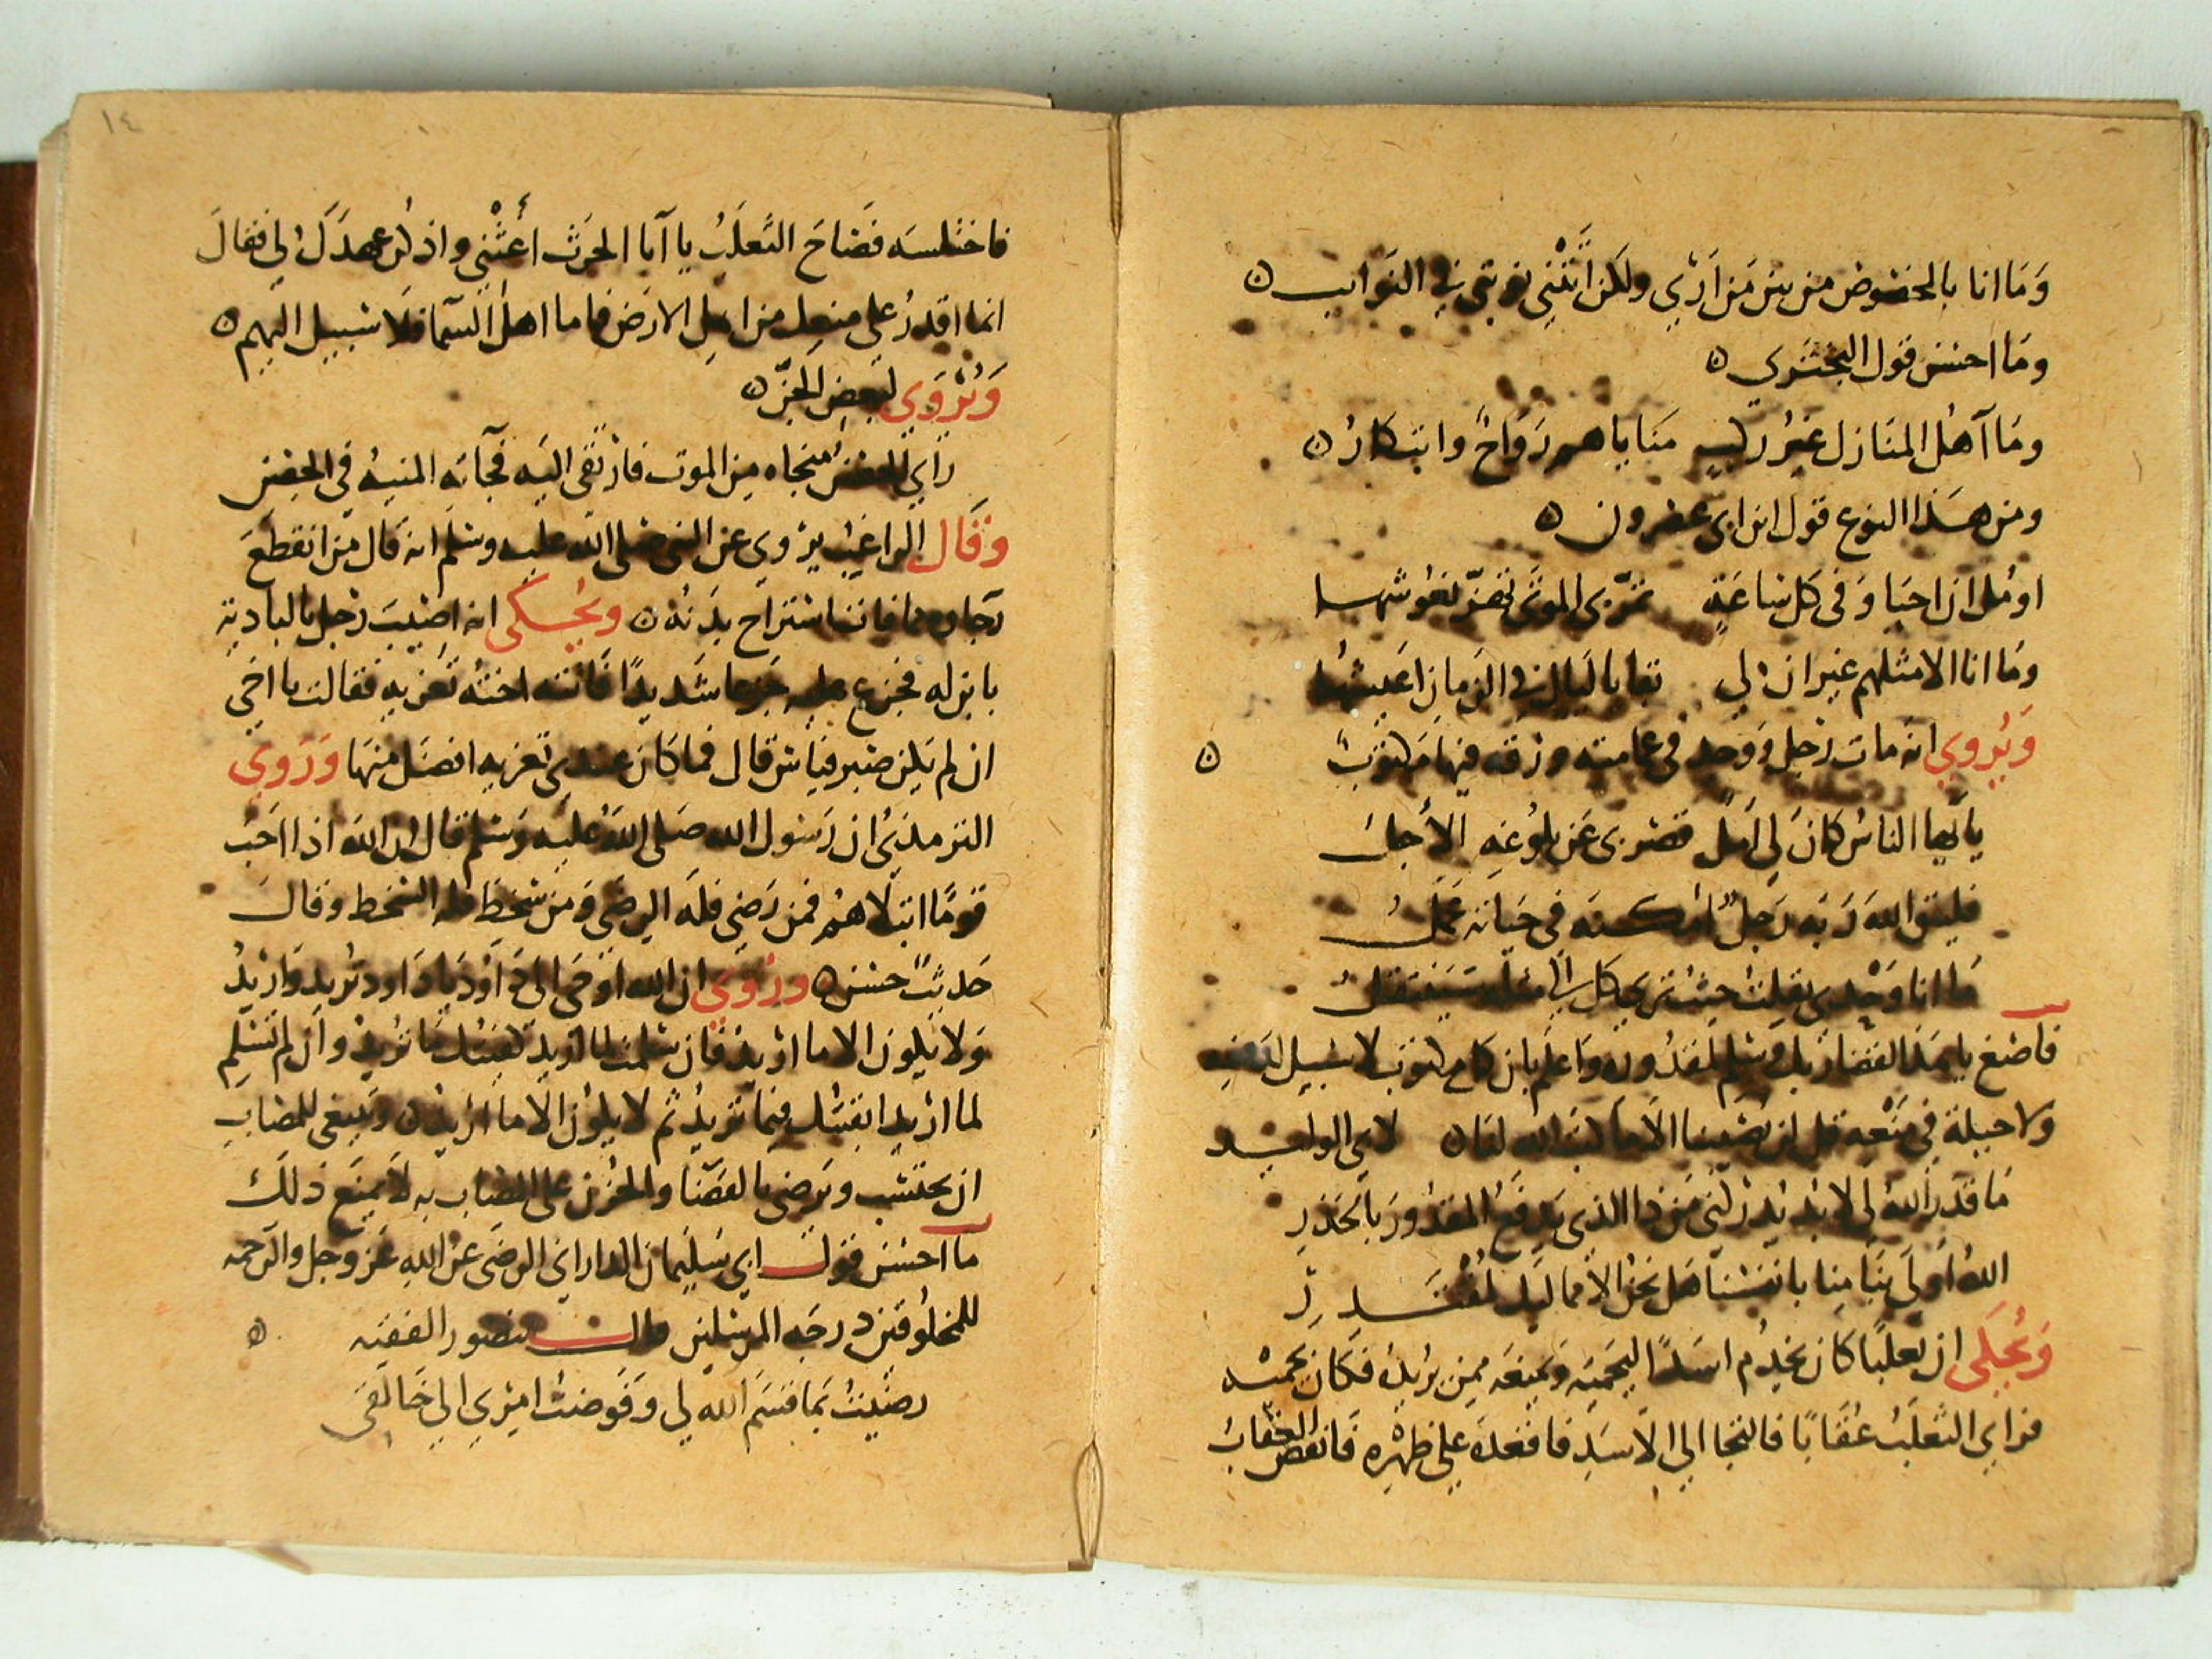 وَمَا انا بالمخصوص من بين مَن اَرَى ولكن اَتَتْني نوبتي في النَوايب ٥
ومَا احسن قول البحتري ٥
ومَا آهْل المنَازل غيرُ ركب مَنَاياهم رَوَاحٌ وابتكارُ ٥
ومن هَذا النوع قول ابن ابي عصرون ٥
اومّل ان احيَا وَفي كل سَاعَةٍ تمرّ بي الموتَى تهَزّ نعُوشها
ومَا انا الا مثلهم غير ان لي بقايا ليَالٍ في الزمَانِ اَعيشُها
وَيُروي انه مات رَجل وَوجد في عمامته ورقه فيهَا مَكتوبٌ ٥
يا ايها الناسُ كانَ لي اَمل قصر بي عَن بلوُغهِ الأَجلُ
فليتق اللهَ رَبه رَجلٌ امكنه في حيَاته عَملُ
مَا انا وَحْدي نقلتُ حيثُ تري كل الي مثله سَينتقلُ
فاصْغ يا هَذا لقضا ربك وسَلم لمقدُوره وَاعلم بان كل مكتوب لا سَبيل لدَفعه
ولا حيلة في مَنْعه قل لن يُصيبنا الا مَا كتبَ الله لنا ٥ لابي الوليد
مَا قدَّر اللهُ لي لا بُد يُدركني مَن ذا الذي يَدفعُ المقدُورَ بالحَذرِ
اللهُ اَولَى بنَا منا بانفسنَا هَل نحنُ الا مماليك لمُقتَدرِ
وَيُحكَى ان ثعلبًا كانَ يخدُم اسَدًا ليحميَه ويمنعَه ممن يُريدُه فكانَ يحميْه
فراي الثعلَبُ عُقَابًا فالتجا الي الاسَدِ فاقعدَه علي ظهْره فَانقض العقابُ
١٤
فاختلسَه فصَاحَ الثعلَبُ يا اَبا الحرَث اَغثْني واذكر عهدَكَ لي فقالَ
انما اقدرُ على منعك من اهلِ الارَض فاما اهلُ السمَا فلا سبيل اليهم ٥
وَيُرْوَي لبعضِ الجنّ ٥
رَاي الحصنُ منجاه من الموت فارْتقى اليَه فجآته المنيهُ في الحصْن
وقَال الراغبُ يرْوي عن النبي صَلى الله عليه وسَلم انه قال من انقطعَ
رَجاوه مما فات استرَاح بدَنُه ٥ ويُحكى انه اصيْبَ رَجل بالباديَة
بابن له فجزع عليه جَزعا شدَيدًا فاتته اخته تعَزيه فقالت يا اخي
ان لم يكن صَبر فيَاسٌ قال فما كانَ عندي تعزيه افضَل منهَا وَرَوي
الترمذي ان رَسول الله صَلى اللهُ عليه وسَلم قال ان الله اذا احَبّ
قومًا ابتلَاهُم فمن رَضي فلَه الرضَي ومَن سَخطَ فله السَخط وقال
حَديثٌ حسَن ٥ ورُوَي ان الله اوْحَى الى دَاوُد يا دَاود تُريد وَاُريدُ
وَلا يكون الا ما اُريدُ فان سَلمت لما اُريد كفيتك مَا تُريد وان لم تسَلم
لما اُريد اتعَبتك فيمَا تُريدُ ثم لا يكونُ الا ما اُريد ٥ وَينبغي للمصَاب
ان يحتسب ويَرضى بالقضَا والحُزن على المصَاب به لا يمنَع ذلك
ما احسَن قول ابي سليمان الداراني الرضَى عن اللهِ عَز وجل والرحمه
للمخلُوقين درجَه المرسَلين وقال منصور الفقيه ٥
رضيتُ بمَا قسَم الله لي وَفوضتُ امري الي خالقي